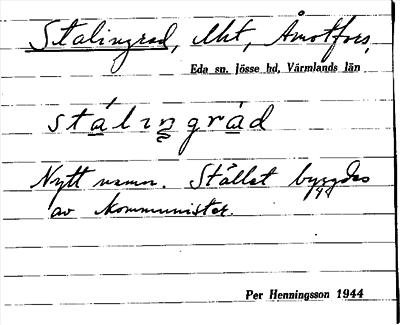 Stalingrad, lht, Åmotfors,
Eda sn. Jösse hd, Värmlands län
stálingràd
Nytt namn. Stället byggdes
av kommunister.
Per Henningsson 1944